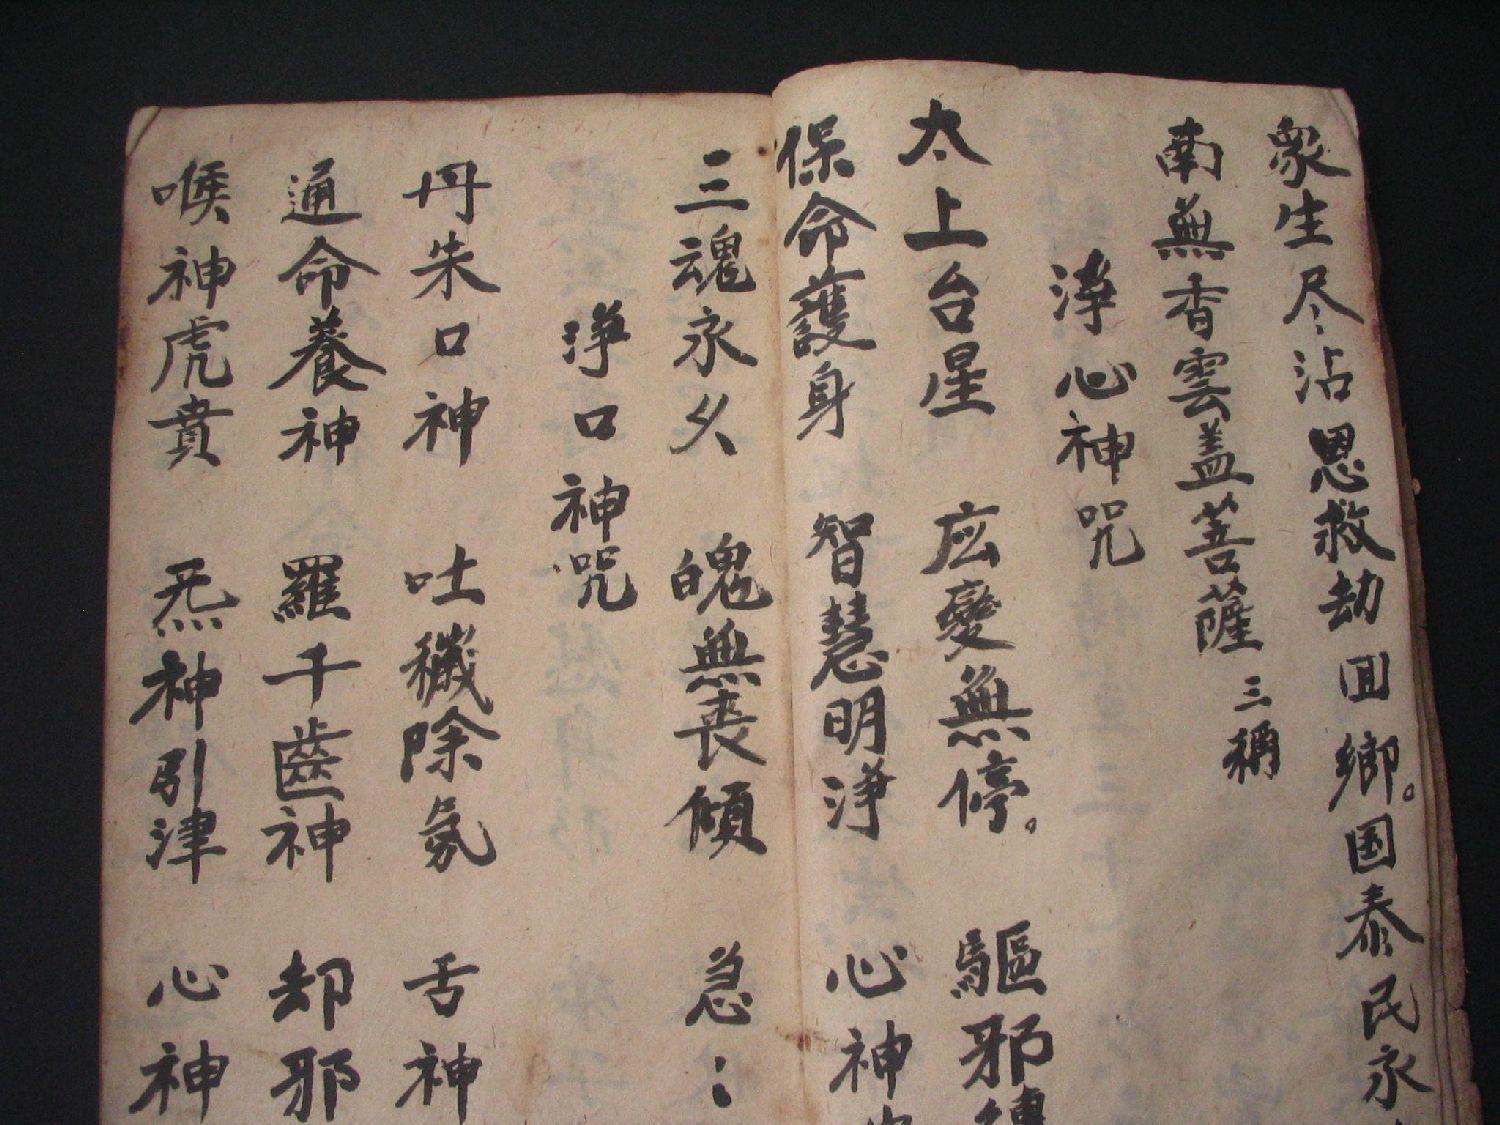 衆生尽沾恩救劫回鄉。国泰民永
南無香雲盖菩薩 三稱
淨心神咒
太上台星 应變無停。 驅邪縛
保命護身 智慧明浄 心神
三魂永久 魄無丧傾 急：
浄口神咒
丹朱口神 吐穢除氛 舌神
通命養神 羅千齒神 却邪
喉神虎賁 炁神引津 心神